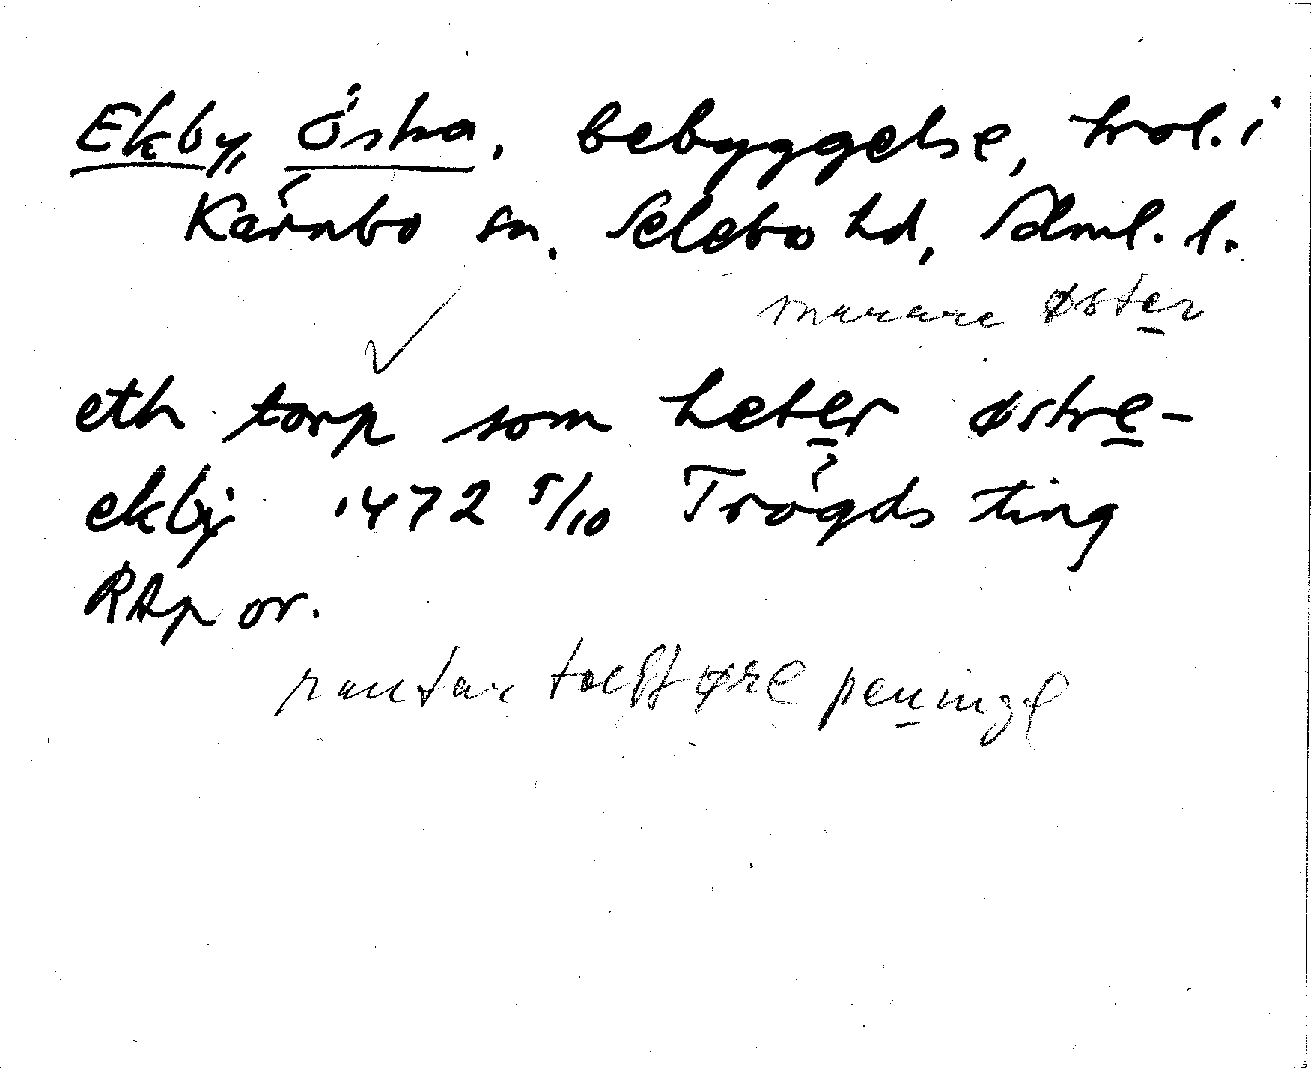 Ekby, Östra, bebyggelse, trol. i
Kärnbo sn, Selebo hd, Södml. l.
marare øster
eth torp som heter østre-
ekby 1472 5/10 Trögds ting
RAp or.
rantar tolff øre peninge